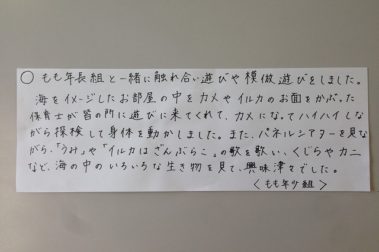 ○ もも年長組と一緒に触れ合い遊びや模倣遊びをしました。
海をイメージしたお部屋の中をカメやイルカのお面をかぶった
保育士が皆の所に遊びに来てくれて、カメになってハイハイし
ながら探検して身体を動かしました。また、パネルシアターを見な
がら、「うみ」や「イルカはざんぶらこ」の歌を歌い、くじらやカニ
など、海の中のいろいろな生き物を見て、興味津々でした。
＜もも年少組＞